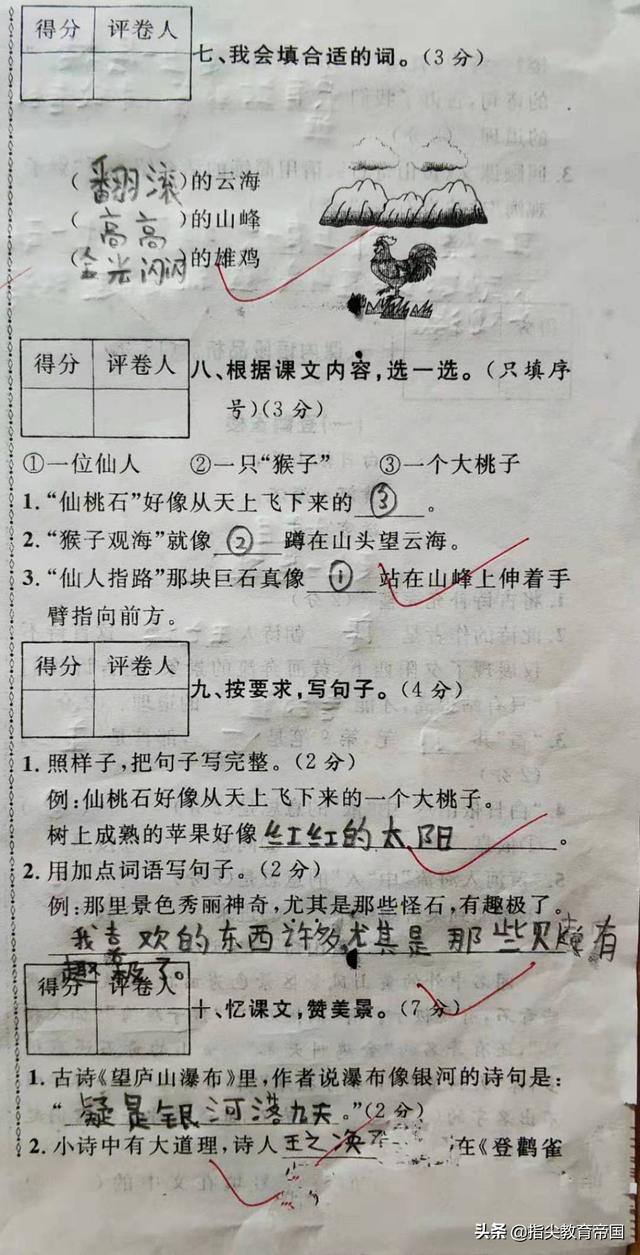 得分 评卷人
七、我会填合适的词。(3分)
(翻滚)的云海
(高高)的山峰
(金光闪闪)的雄鸡
得分 评卷人
八、根据课文内容,选一选。(只填序
号)(3分)
①一位仙人 ②一只“猴子” ③一个大桃子
1.“仙桃石”好像从天上飞下来的③。
2.“猴子观海”就像②蹲在山头望云海。
3.“仙人指路”那块巨石真像①站在山峰上伸着手
臂指向前方。
得分 评卷人
九、按要求,写句子。(4分)
1.照样子,把句子写完整。(2分)
例:仙桃石好像从天上飞下来的一个大桃子。
树上成熟的苹果好像红红的太阳。
2.用加点词语写句子。(2分)
例:那里景色秀丽神奇,尤其是那些怪石,有趣极了。
我喜欢的东西许多尤其是那些贝壳有
趣极了。
得分 评卷人
十、忆课文,赞美景。(7分)
1.古诗《望庐山瀑布》里,作者说瀑布像银河的诗句是:
“疑是银河落九天。”(2分)
2.小诗中有大道理,诗人王之涣在《登鹳雀
头条 @指尖教育帝国